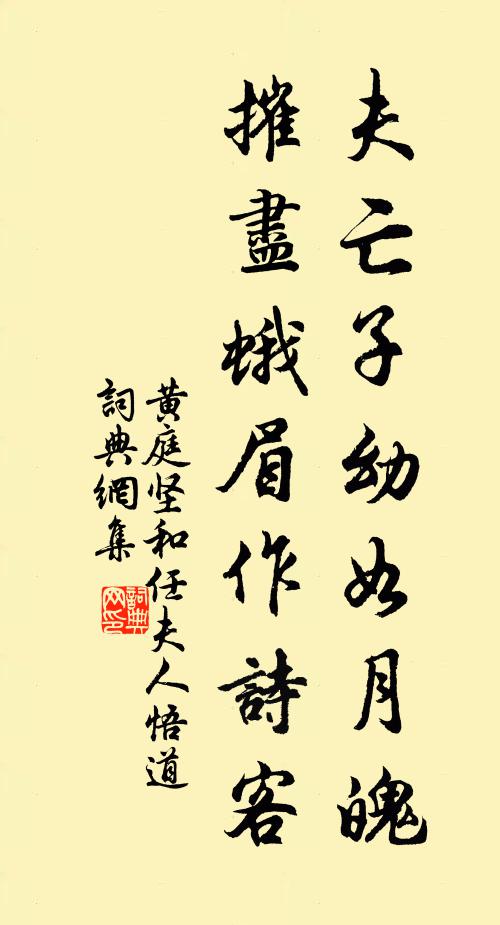 夫亡子幼如月魄
摧盡蛾眉作詩客
黄庭坚和任夫人悟道
詞典網集
詞典网印